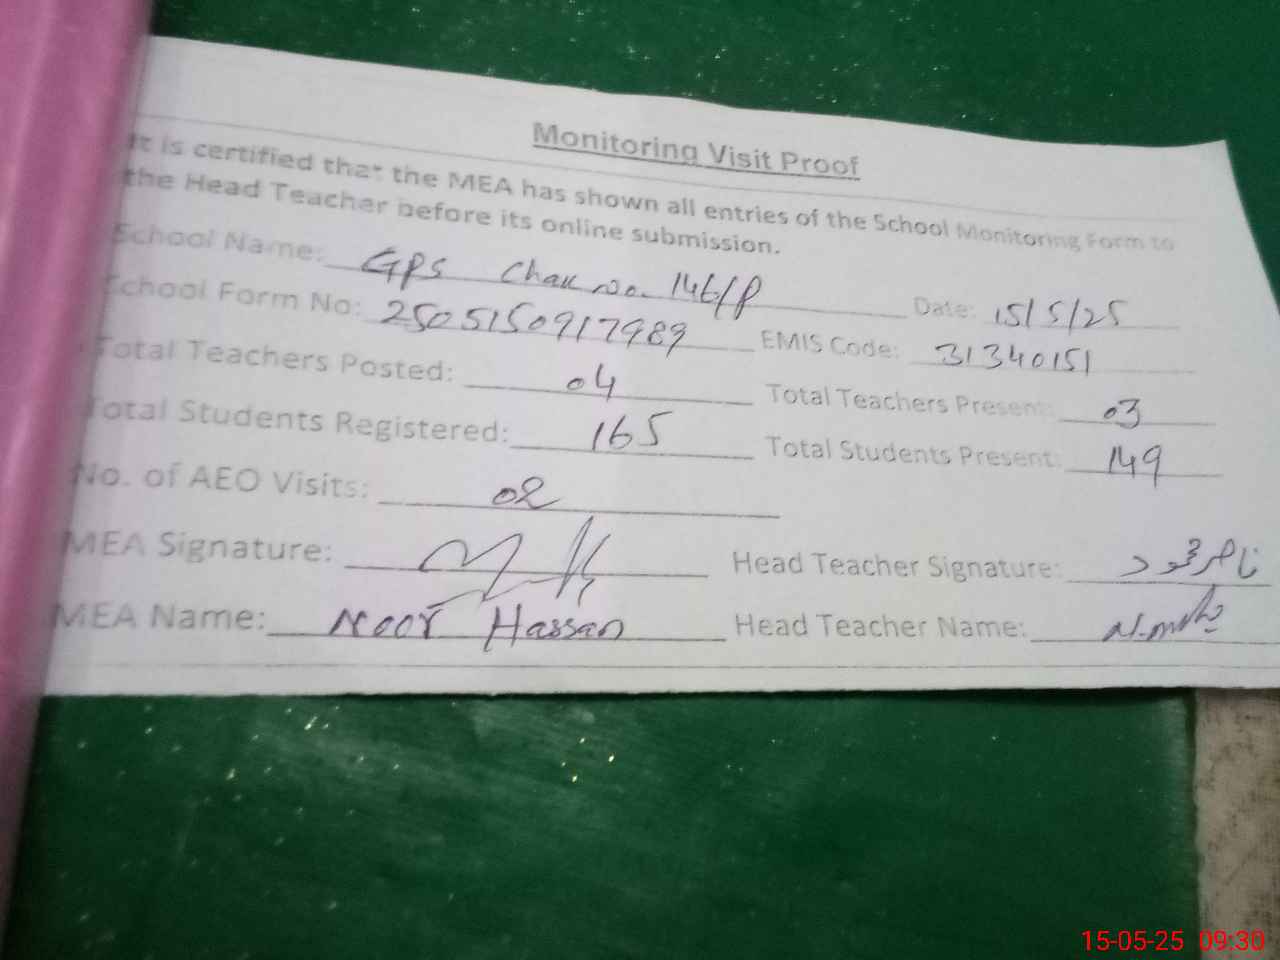 Monitoring Visit Proof
It is certified that the MEA has shown all entries of the School Monitoring Form to
the Head Teacher before its online submission.
School Name: GPS Chak no. 146/P Date: 15/5/25
School Form No: 2505150917989 EMIS Code: 31340151
Total Teachers Posted: 04 Total Teachers Present: 03
Total Students Registered: 165 Total Students Present: 149
No. of AEO Visits: 02
MEA Signature: Head Teacher Signature:
MEA Name: Noor Hassan Head Teacher Name:
15-05-25 09:30